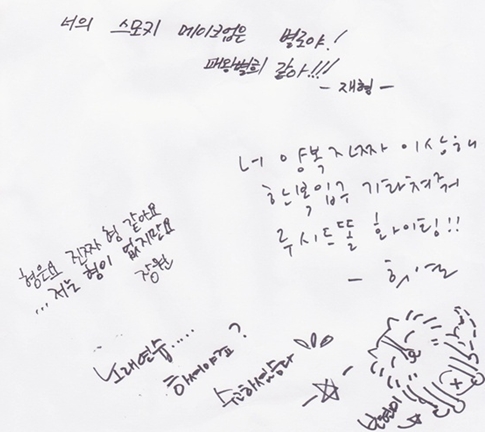 너의 스모키 메이크업은 별로야!
패왕별희 같아!!!
- 재형 -
너 양복 진짜 이상해
한복입구 기타쳐줘
루시드폴 화이팅!!
형은요 진짜 형 같아요
...저는 형이 없지만요
장원
노래연습.....
하셔야죠?